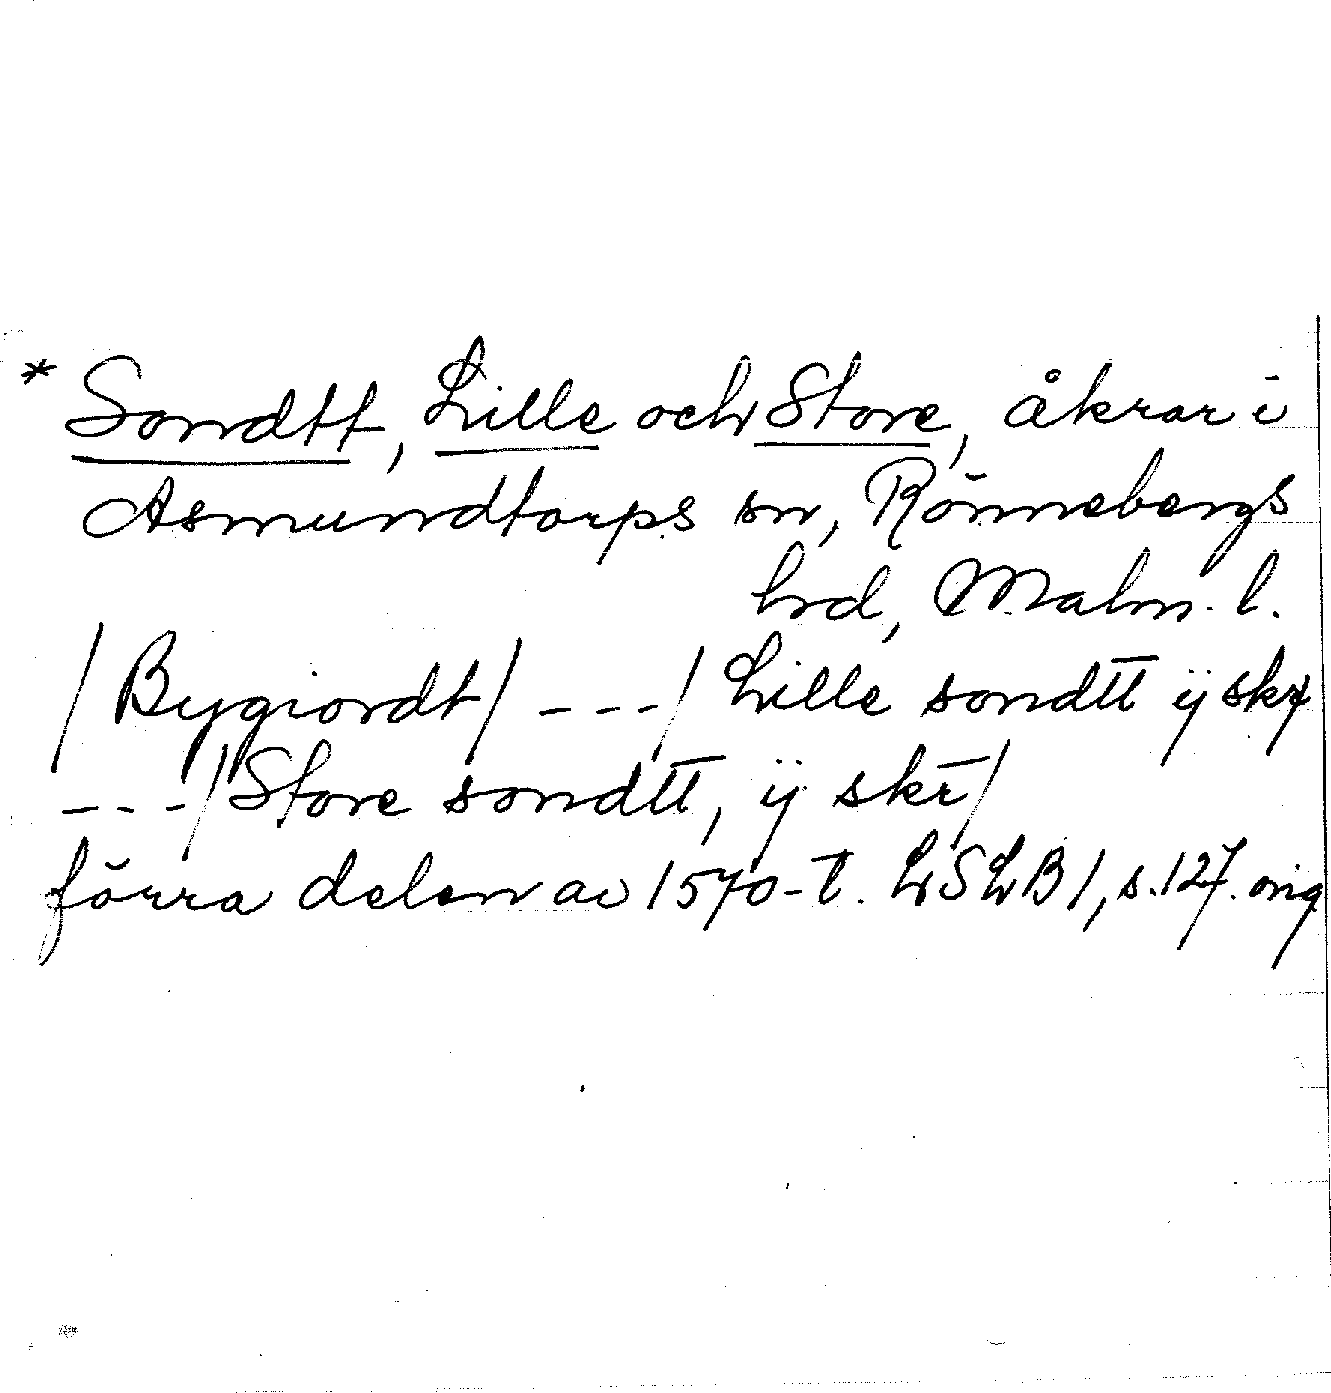 * Sondtt, Lille och Store, åkrar i
Asmundtorps sn, Rönnebergs
hrd, Malm. l.
/Bygiordt/ ---/ Lille sondtt ÿ skr
---/Store sondtt, ÿ skr/
förra delen av 1570-t. LSLB 1, s. 127. orig